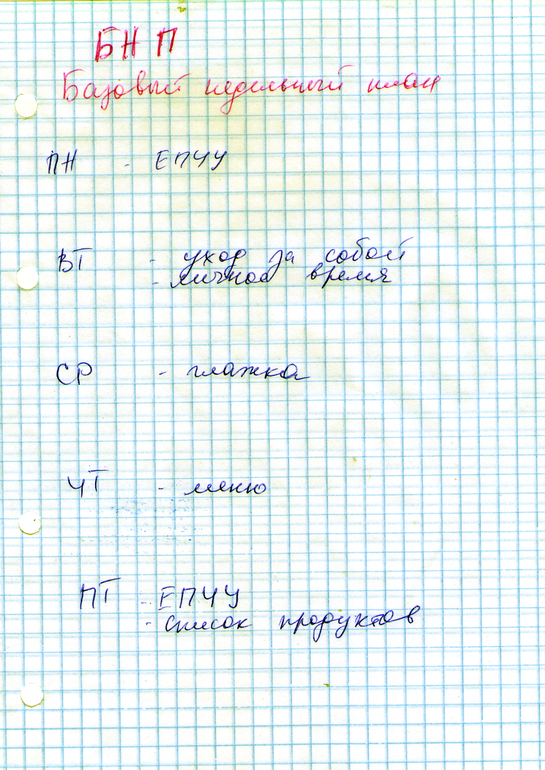 БНП
Базовый недельный план
ПН - ЕПЧУ
ВТ - уход за собой
- личное время
СР - глажка
ЧТ - меню
ПТ - ЕПЧУ
- список продуктов